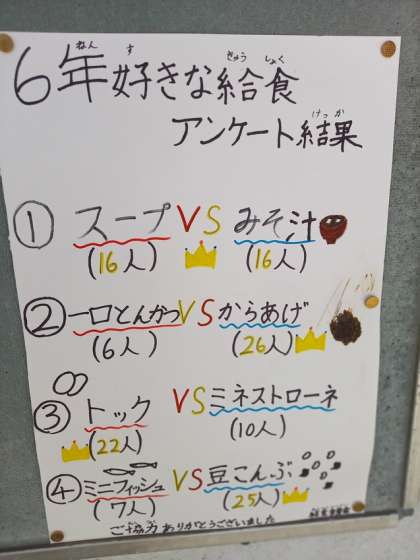 6年好きな給食
ねん す きゅう しょく
アンケート結果
けっか
① スープ VS みそ汁
(16人) (16人)
② 一口とんかつ VS からあげ
(6人) (26人)
③ トック VS ミネストローネ
(22人) (10人)
④ ミニフィッシュ VS 豆こんぶ
(7人) (25人)
ご協力ありがとうございました